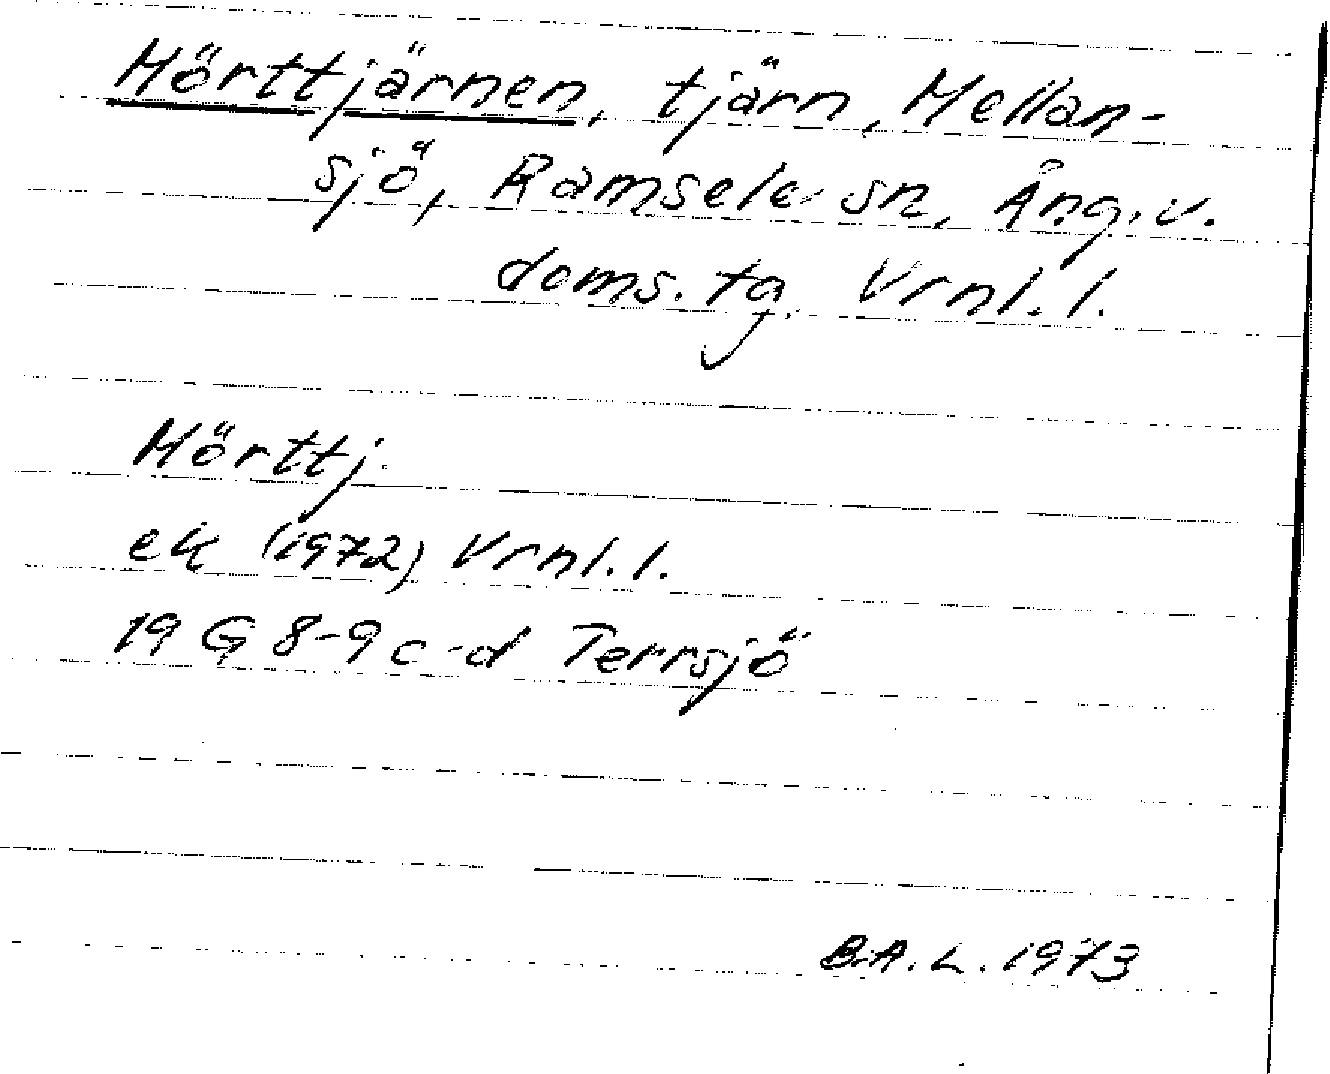 Mörttjärnen, tjärn, Mellan-
sjö, Ramsele sn, Ång. v.
doms. tg. Vrnl. l.
Mörttj.
ek (1972) Vrnl. l.
19 G 8-9 c-d Terrsjö
B.A.L. 1973